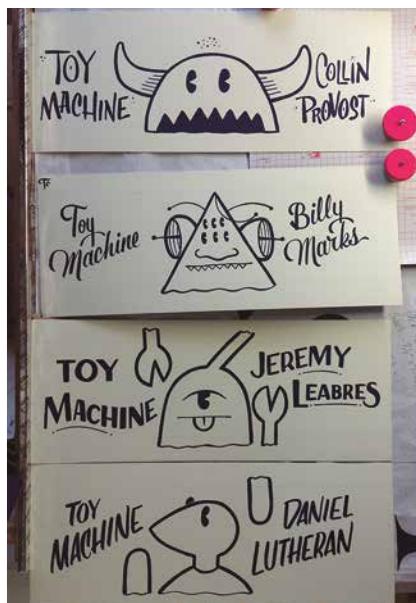 TOY
MACHINE
COLLIN
PROVOST
Toy
Machine
Billy
Marks
TOY
MACHINE
JEREMY
LEABRES
TOY
MACHINE
DANIEL
LUTHERAN